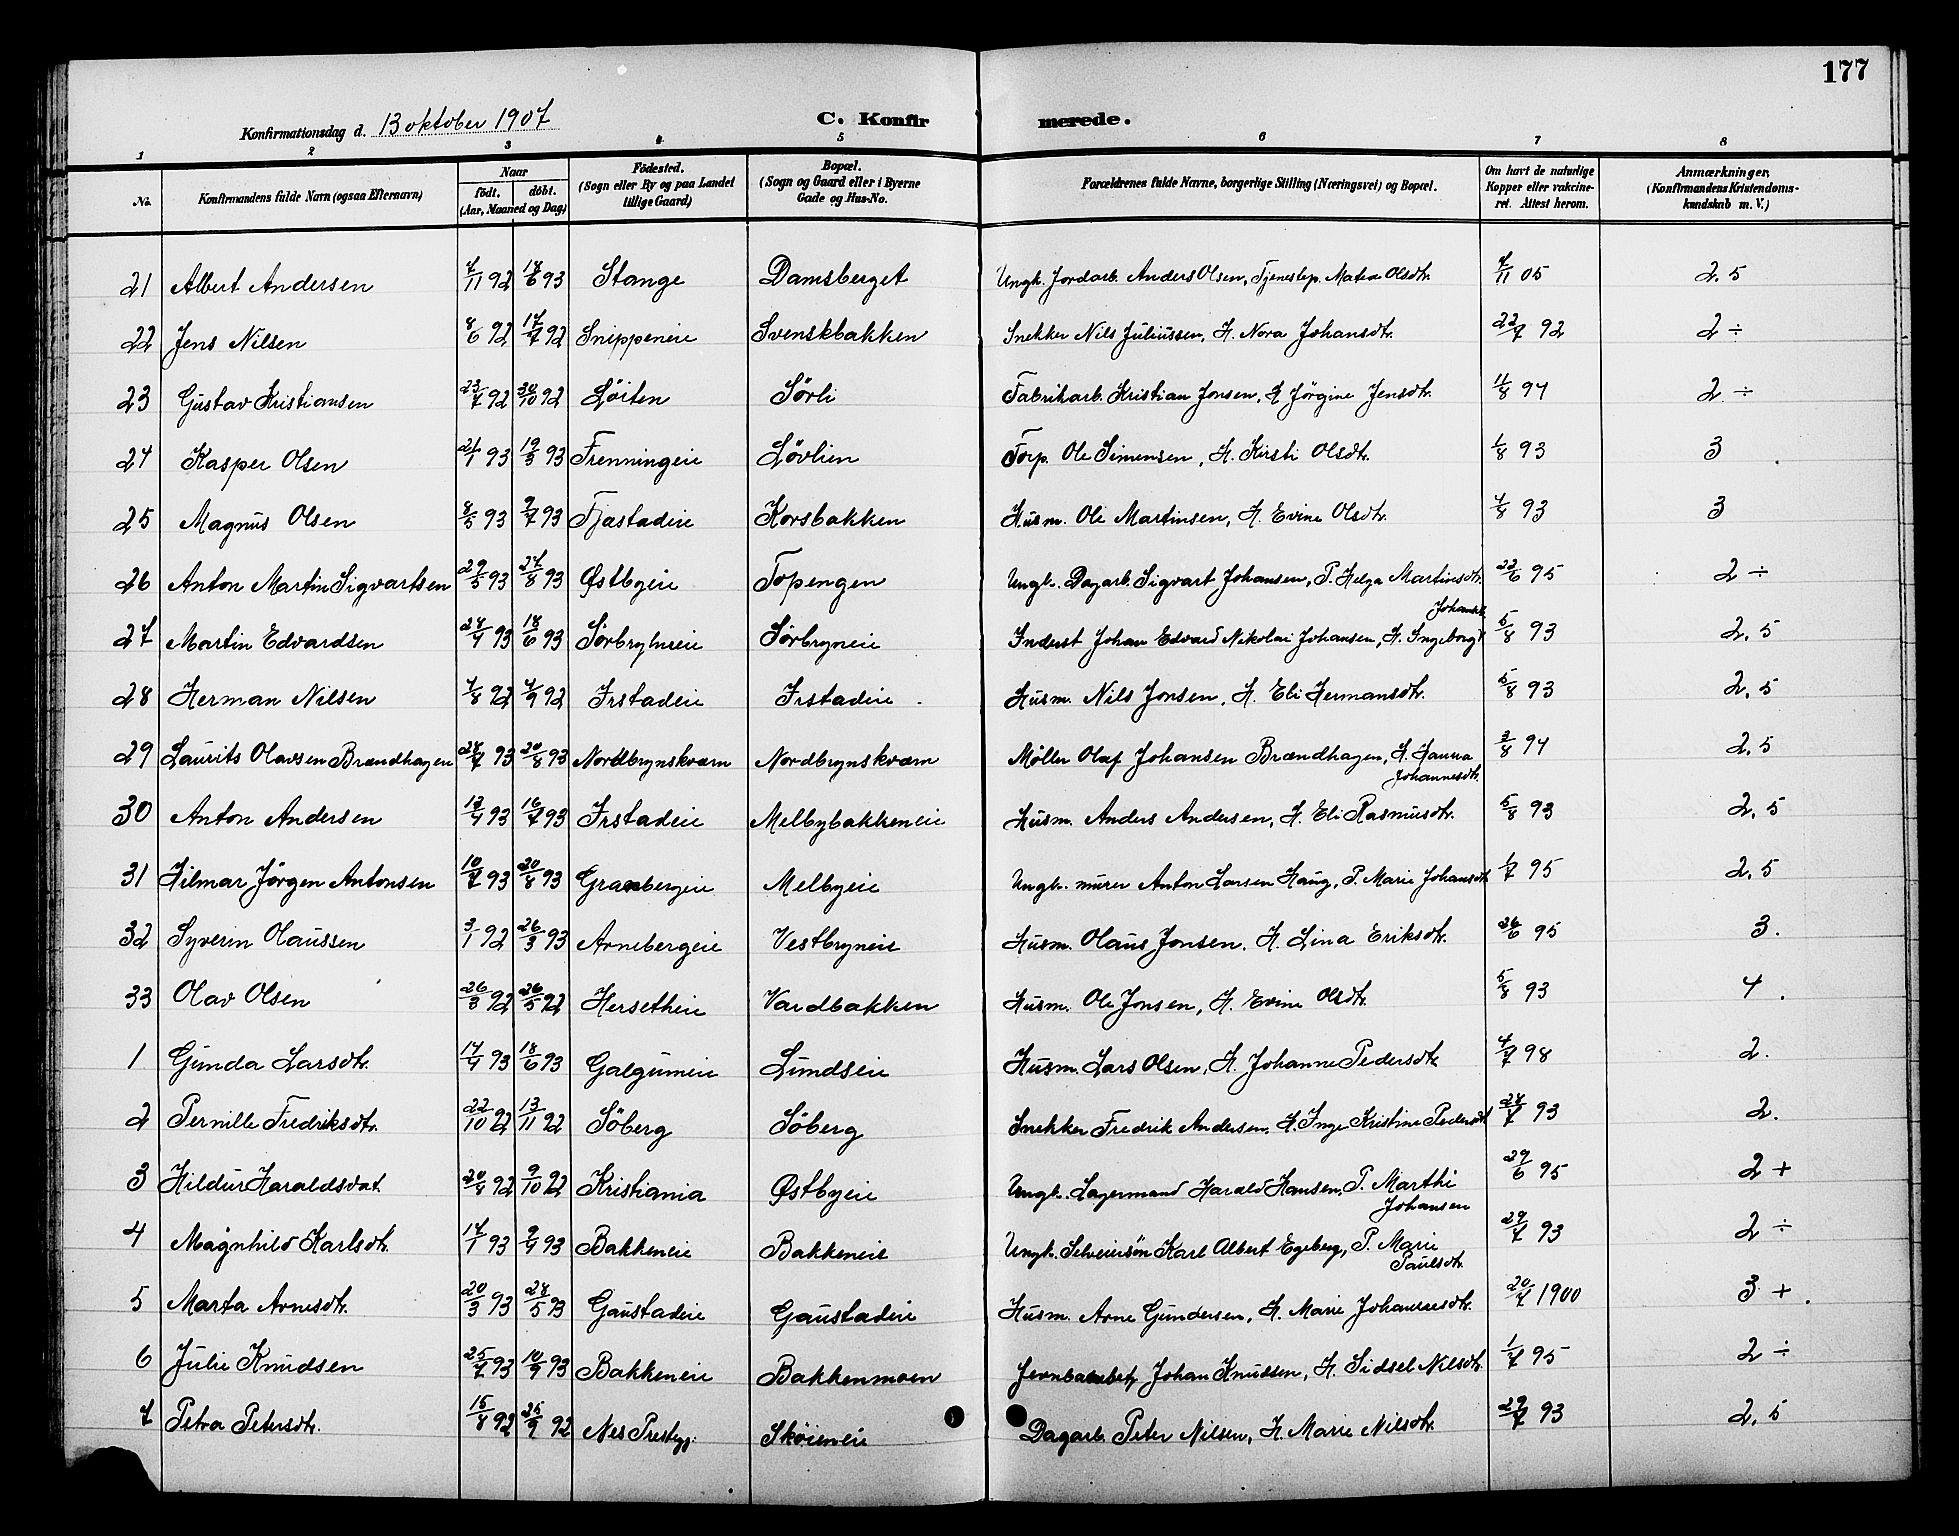 177
Konfirmationsdag d. 13 oktober 1907 C. Konfirmerede.
1 2 3 4 5 6 7 8
No. Konfirmandens fulde Navn (ogsaa Efternavn) Naar födt. döbt. (Aar, Maaned og Dag) Födested. (Sogn eller By og paa Landet tillige Gaard) Bopæl. (Sogn og Gaard eller i Byerne Gade og Hus-No. Forældrenes fulde Navne, borgerlige Stilling (Næringsvei) og Bopæl. Om havt de naturlige Kopper eller vaccineret. Attest herom. Anmærkninger, (Konfirmandens Kristendomskundskab m. V.)
21 Albert Andersen 7/11 92 18/6 93 Stange Damsberget Ungk. Jordarb. Anders Olsen, Tjenestep. Matea Olsdtr. 7/11 05 2.5
22 Jens Nilsen 8/6 92 17/7 92 Snippeneie Svenskbakken Snekker Nils Juliussen, H. Nora Johansdtr. 22/7 92 2 ÷
23 Gustav Kristiansen 23/7 92 30/10 92 Löiten Sörli Fabrikarb. Kristian Jonsen, H. Jörgine Jensdtr. 11/8 94 2 ÷
24 Kasper Olsen 21/1 93 19/3 93 Frenningeie Lövlien Torp. Ole Simensen, H. Kirsti Olsdtr. 1/8 93 3
25 Magnus Olsen 8/5 93 9/7 93 Fjæstadeie Korsbakken Husm. Ole Martinsen, H. Evine Olsdtr. 4/8 93 3
26 Anton Martin Sigvartsen 29/5 93 27/8 93 Østbyeie Topengen Ungk. Dagarb. Sigvart Johansen, P. Helga Martinsdtr. 22/6 95 2 ÷
27 Martin Edvardsen 24/4 93 18/6 93 Sörbryneie Sörbryneie Inderst Johan Edvard Nikolai Johansen, H. Ingeborg Johansd. 5/8 93 2,5
28 Herman Nilsen 7/8 92 4/9 92 Irstadeie Irstadeie Husm. Nils Jonsen, H. Eli Hermansdtr. 5/8 93 2,5
29 Laurits Olavsen Brændhagen 24/7 93 20/8 93 Nordbrynskværn Nordbrynskværn Möller Olaf Johansen Brændhagen, H. Hanna Johannesdtr. 3/8 94 2,5
30 Anton Andersen 13/4 93 16/7 93 Irstadeie Melbybakkeneie Husm. Anders Andersen, H. Eli Rasmusdtr. 5/8 93 2,5
31 Hilmar Jörgen Antonsen 10/7 93 20/8 93 Granbergeie Melbyeie Ungk. murer Anton Larsen Haug, P. Marie Johansdtr 1/7 95 2,5
32 Syverin Olaussen 3/1 92 26/3 93 Arnebergeie Vestbryneie Husm. Olaus Jonsen, H. Lina Eriksdtr. 26/6 95 3.
33 Olav Olsen 26/3 92 26/5 92 Hersetheie Vardbakken Husm. Ole Jonsen, H. Evine Olsdtr. 5/8 93 4.
1 Gunda Larsdtr. 17/4 93 18/6 93 Galgumeie Lundseie Husm. Lars Olsen, H. Johanne Pedersdtr. 4/7 98 2.
2 Pernille Fredriksdtr. 22/10 92 13/11 92 Söberg Söberg Snekker Fredrik Andersen, H. Inge Kristine Pedersdtr 24/7 93 2.
3 Hildur Haraldsdat. 20/8 92 9/10 92 Kristiania Østbyeie Ungk. Lagermand Harald Hansen, P. Marthe Johansen 29/6 95 2 +
4 Magnhild Karlsdtr. 17/1 93 9/4 93 Bakkeneie Bakkeneie Ungk. Selveiersön Karl Albert Egeberg, P. Marie Paulsdtr. 29/7 93 2 ÷
5 Marta Arnesdtr. 20/3 93 28/5 93 Gaustadeie Gaustadeie Husm. Arne Gundersen, H. Marie Johannesdtr. 20/7 1900 3 +
6 Julie Knudsen 25/7 93 10/9 93 Bakkeneie Bakkenmoen Jernbanebetj. Johan Knudsen, H. Sidsel Nilsdtr. 1/7 95 2 ÷
7 Petra Petersdtr. 15/8 92 25/9 92 Nes Prestegj. Sköieneie Dagarb. Peter Nilsen, H. Marie Nilsdtr. 29/7 93 2,5